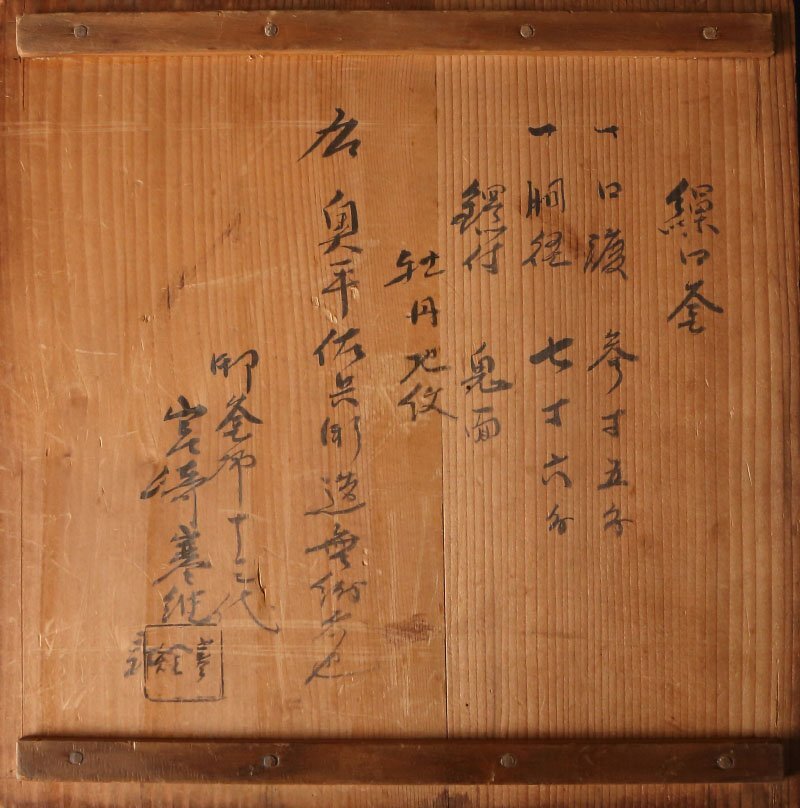 繰口釜
一 口渡 参寸五分
一 胴径 七寸六分
鐶付 鬼面
牡丹地紋
右 奥平佐兵衛造無紛者也
御釜師十三代
宮崎寒雉